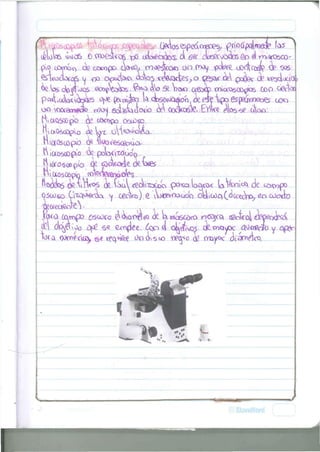 Microscopios fotónicos especiales: Ciertos especímenes, principalmente las
células vivas o muestras no coloreadas al ser observadas en el microsco-
pio común de campo claro, muestran un muy pobre contraste de sus
estructuras y no aportan datos relevantes, a pesar del poder de resolución
de los objetivos empleados. Para ello se han creado microscopios con ciertas
particularidades que permiten la observación de este tipo especímenes con
un incremento muy satisfactorio del contraste. Entre ellos se
Microscopio de campo oscuro.
Microscopio de luz ultravioleta.
Microscopio de fluorescencia.
Microscopio de polarización.
Microscopio de contraste de fases
Microscopio interferenciales.
Modelos de filtros de fácil realización para lograr la técnica de campo
oscuro (izquierda y centro) e iluminación oblicua (derecha, en cuarto
creciente).
Para campo oscuro el diámetro de la máscara negra central dependerá
del objetivo que se emplee. Con el objetivos de mayor aumento y aper-
tura numérica, se requiere un disco negro de mayor diámetro.